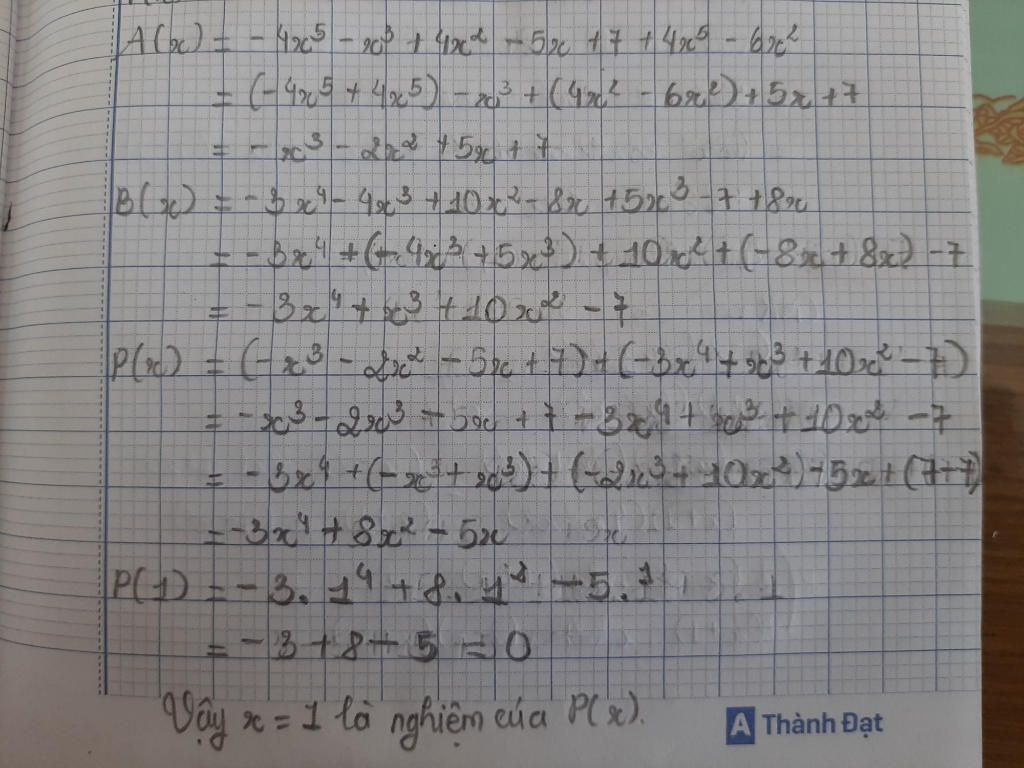 A(x) = -4x⁵ - x³ + 4x² - 5x + 7 + 4x⁵ - 6x²
= (-4x⁵ + 4x⁵) - x³ + (4x² - 6x²) + 5x + 7
= - x³ - 2x² + 5x + 7
B(x) = -3x⁴ - 4x³ + 10x² - 8x + 5x³ - 7 + 8x
= -3x⁴ + (-4x³ + 5x³) + 10x² + (-8x + 8x) - 7
= -3x⁴ + x³ + 10x² - 7
P(x) = (-x³ - 2x² - 5x + 7) + (-3x⁴ + x³ + 10x² - 7)
= -x³ - 2x³ - 5x + 7 - 3x⁴ + x³ + 10x² - 7
= -3x⁴ + (-x³ + x³) + (-2x³ + 10x²) - 5x + (7-7)
= -3x⁴ + 8x² - 5x
P(1) = -3 . 1⁴ + 8 . 1² - 5 . 1
= -3 + 8 - 5 = 0
Vậy x = 1 là nghiệm của P(x).
A Thành Đạt